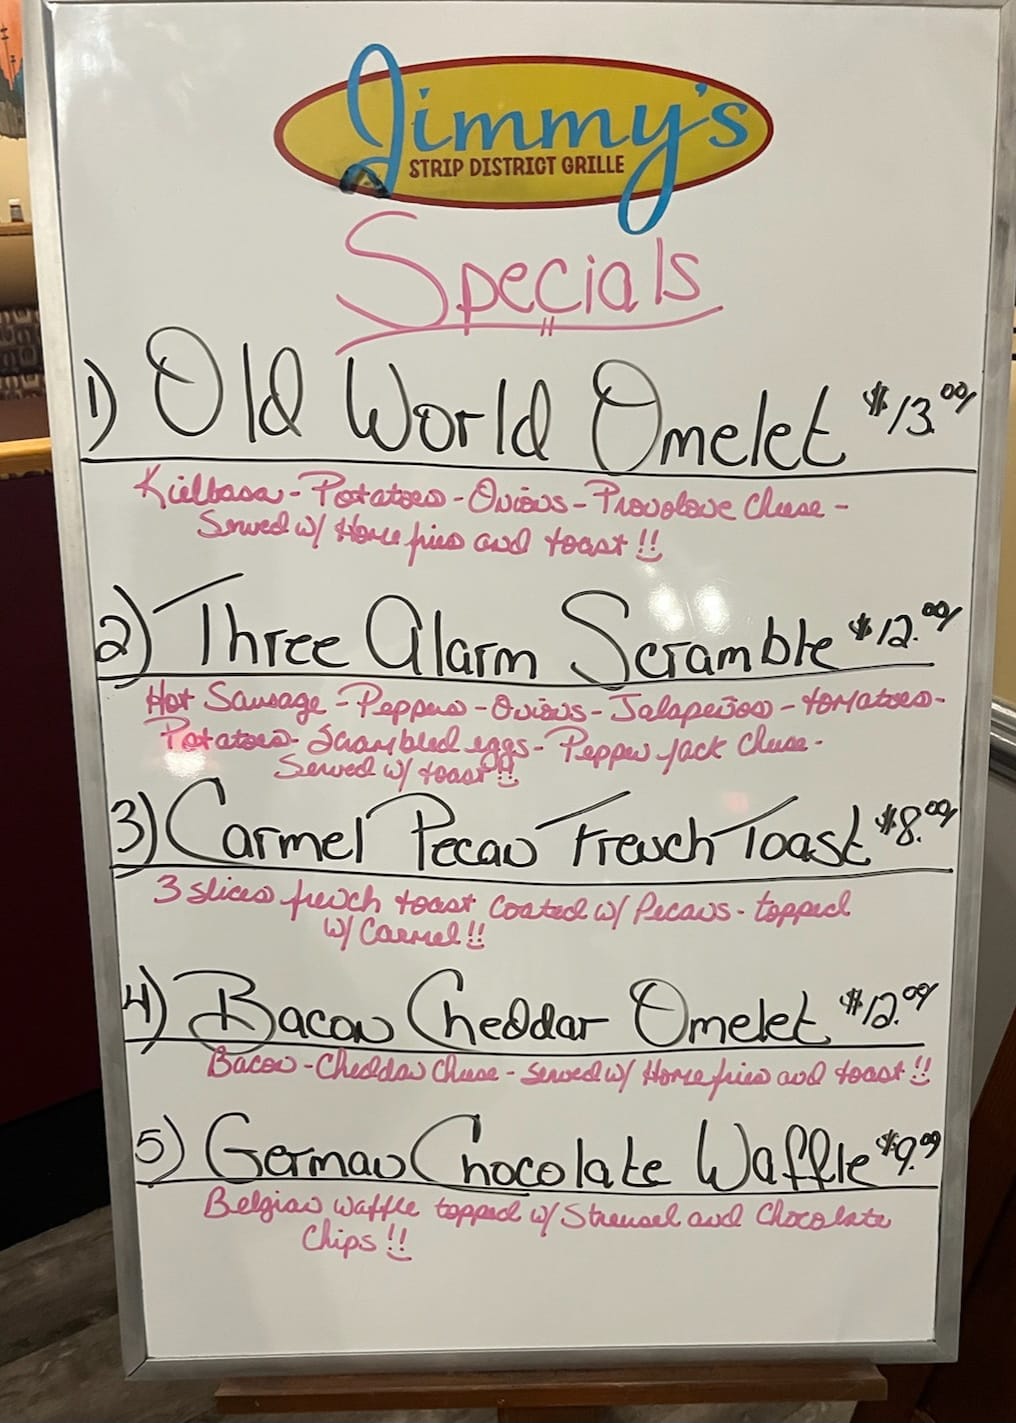 Jimmy's
STRIP DISTRICT GRILLE
Specials
1) Old World Omelet $13.00/
Kielbasa - Potatoes - Onions - Provolone Cheese -
Served w/ Home fries and toast!!
2) Three Alarm Scramble $12.00/
Hot Sausage - Peppers - Onions - Jalapeños - tomatoes -
Potatoes - Scrambled eggs - Pepper Jack Cheese -
Served w/ toast!!
3) Carmel Pecan French Toast $8.00/
3 slices french toast coated w/ Pecans - topped
w/ Carmel!!
4) Bacon Cheddar Omelet $12.00/
Bacon - Cheddar Cheese - Served w/ Home fries and toast!!
5) German Chocolate Waffle $9.00
Belgian waffle topped w/ Streusel and Chocolate
Chips!!